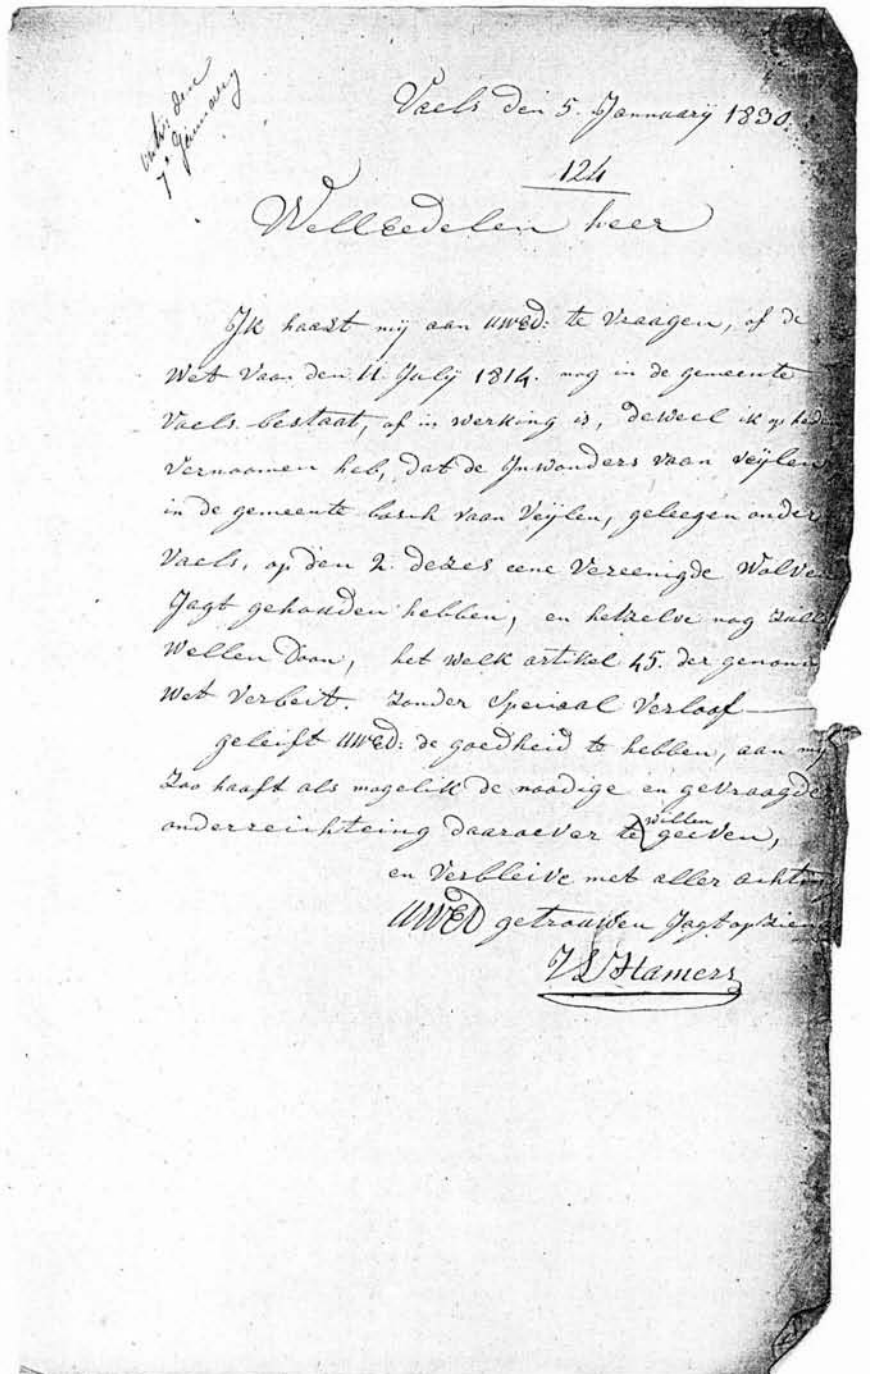 ontv. den
7n January
Vaels den 5. Jannuarij 1830.
124
WellEedelen heer
Ik haast mij aan UWED. te vraagen, of de
Wet Vaan den 11. Julij 1814. nog in de gemeente
Vaels bestaat, of in werking is, deweel ik op heden
Vernoomen heb, dat de Inwonders vaan veijlen
in de gemeente bosch vaan Veijlen, geleegen onder
Vaels, op den 2. dezes eene Vereenigde Wolven
Jagt gehouden hebben, en hetzelve nog zulle
Wellen doon, het welk artikel 45. der genoum
Wet Verbeit. zonder Speciaal Verloof —
geleift UWED: de goedheid te hebben, aan mij
Zoo haast als mogelik de noodige en gevraagde
onderreichteing daaroever te willen geeven,
en Verbleive met aller achting
UWED getrouwen Jagtopzien
J L Hamers